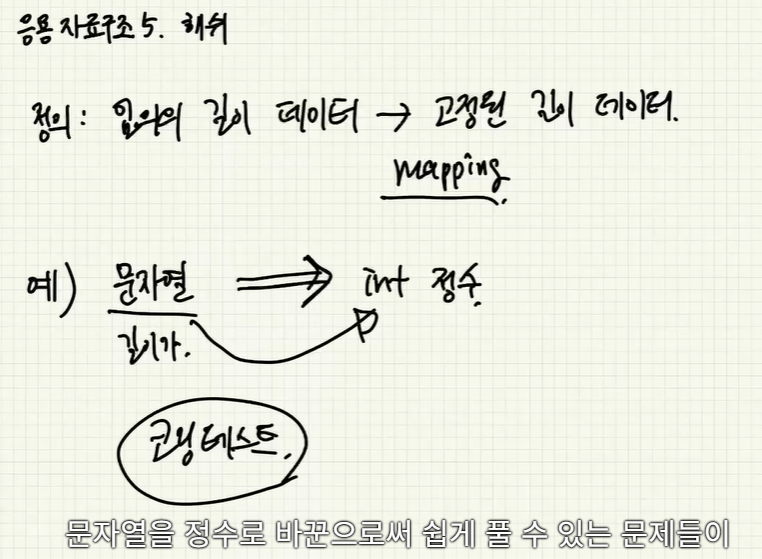 응용 자료구조 5. 해쉬
정의: 임의의 길이 데이터 → 고정된 길이 데이터.
mapping.
예) 문자열 ⇒ int 정수.
길이가.
코딩테스트.
문자열을 정수로 바꾼으로써 쉽게 풀 수 있는 문제들이